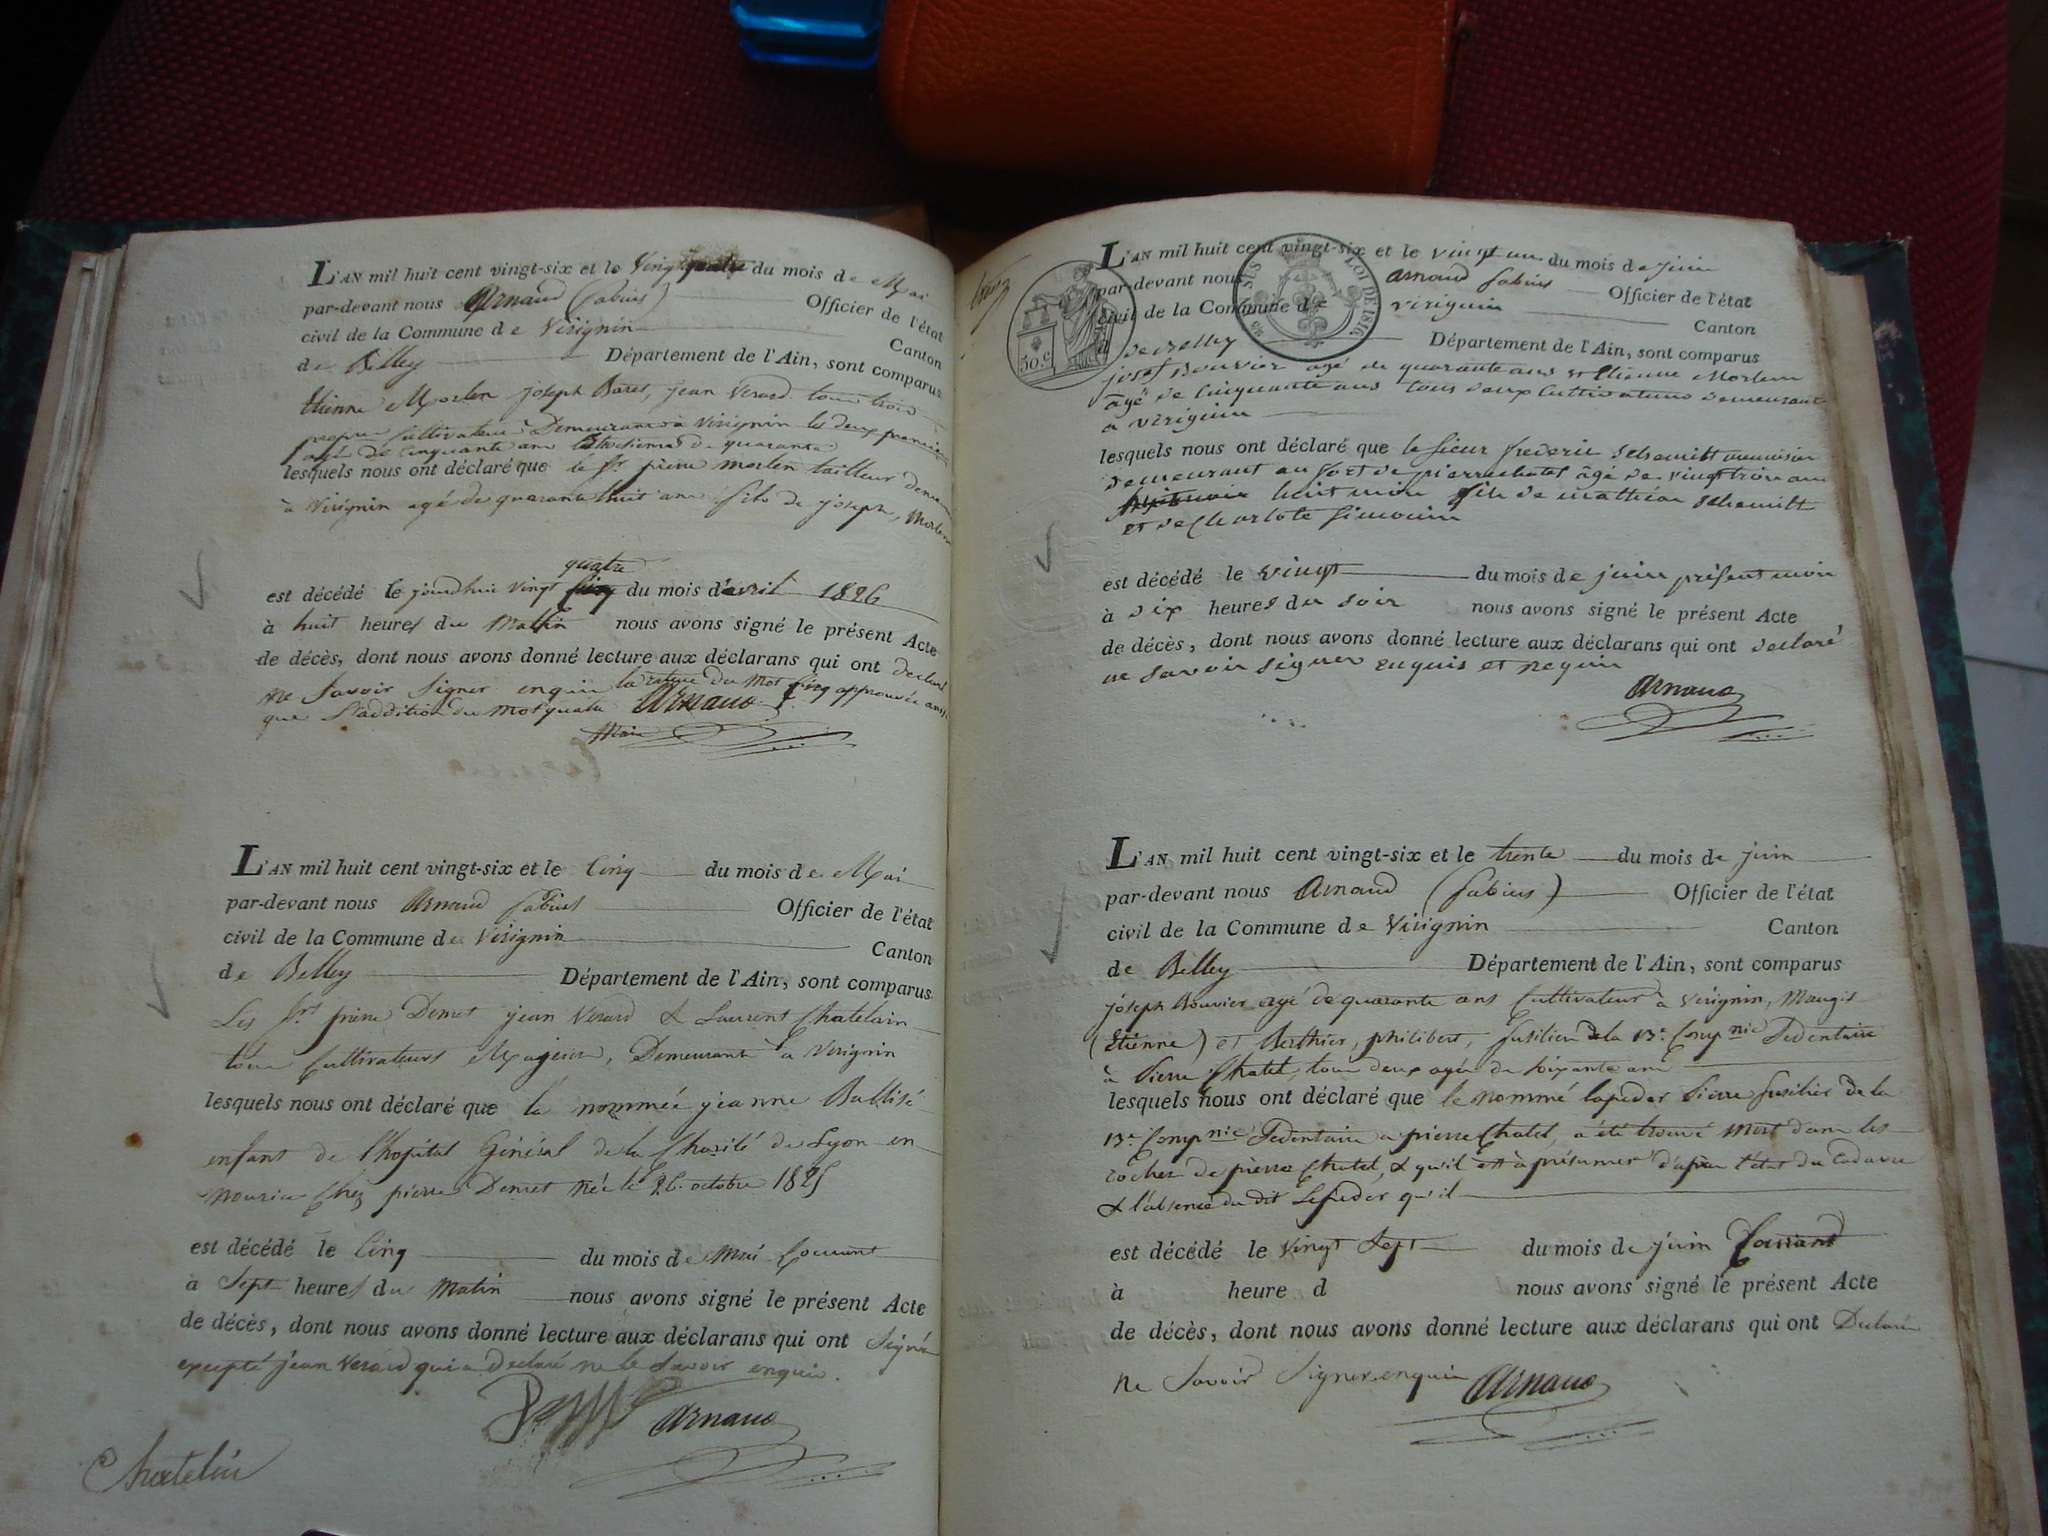 L'AN mil huit cent vingt-six et le Vingt quatre du mois de Mai
par-devant nous Arnaud (fabius) Officier de l'état
civil de la Commune de Virignin Canton
de Belley Département de l'Ain, sont comparus
Etienne Morlen joseph Baret, jean Verard tous trois
propre Cultivateur Demeurant à Virignin les deux premiers
agé de Cinquante ans le troisieme de quarante
lesquels nous ont déclaré que le Sr pierre morlen tailleur demeurant
à Virignin agé de quarante huit ans fils de joseph, Morlen
quatre
est décédé le jourdhui vingt cinq du mois d'avril 1826
à huit heures du Mattin nous avons signé le présent Acte
de décès, dont nous avons donné lecture aux déclarans qui ont declaré
ne Savoir Signer enquis la rature du Mot Cinq approuvée ainsi
que l'addition du mot quatre Arnaud
Maire
L'AN mil huit cent vingt-six et le Cinq du mois de Mai
par-devant nous Arnaud fabius Officier de l'état
civil de la Commune de Virignin Canton
de Belley Département de l'Ain, sont comparus
Les Srs pierre Demet jean Verard & Laurent Chatelain
tous Cultivateurs Majeurs, Demeurant à Virignin
lesquels nous ont déclaré que la nommée jeanne Ballisé
enfant de l'hopital Général de la Charité de Lyon en
nourice Chéz pierre Demet Née le 26 octobre 1825
est décédé le Cinq du mois de Mai Courant
à Sept heures du Matin nous avons signé le présent Acte
de décès, dont nous avons donné lecture aux déclarans qui ont Signé
excepté jean Verard qui a Declaré ne le Savoir enquis.
Arnaud
Chatelin
L'AN mil huit cent vingt-six et le vingt un du mois de juin
par-devant nous Arnaud fabius Officier de l'état
civil de la Commune de virignin Canton
de Belley Département de l'Ain, sont comparus
josef Bouvier agé de quarante ans et Etienne Morlem
âgé de cinquante ans tous deux Cultivateurs demeurant
a virignin
lesquels nous ont déclaré que le sieur frederic schemitt menuisier
demeurant au fort de pierrechatel âgé de vingt trois ans
huit mois fils de mathieu schemitt
et de Charlote Simonin
est décédé le vingt du mois de juin présent mois
à six heures du soir nous avons signé le présent Acte
de décès, dont nous avons donné lecture aux déclarans qui ont declaré
ne savoir signer enquis et requis
Arnaud
LOI DE 1816
50 c
L'AN mil huit cent vingt-six et le trente du mois de juin
par-devant nous Arnaud (fabius) Officier de l'état
civil de la Commune de Virignin Canton
de Belley Département de l'Ain, sont comparus
joseph Bouvier agé de quarante ans Cultivateur à Virignin, Maugis
(Etienne) et Berthier, philibert, fusilier de la 13e Compnie Sedentaire
à Pierre Chatel, tous deux agés de soixante ans
lesquels nous ont déclaré que le nommé lapeder Pierre fusilier de la
13e Compnie Sedentaire a pierre Chatel, a été trouvé Mort dans les
rocher de pierre Chatel, & qu'il est à présumer d'après l'état du Cadavre
& l'absence du dit Lepeder qu'il
est décédé le Vingt Sept du mois de juin Courant
à heure d nous avons signé le présent Acte
de décès, dont nous avons donné lecture aux déclarans qui ont Declaré
ne Savoir Signer enquis Arnaud